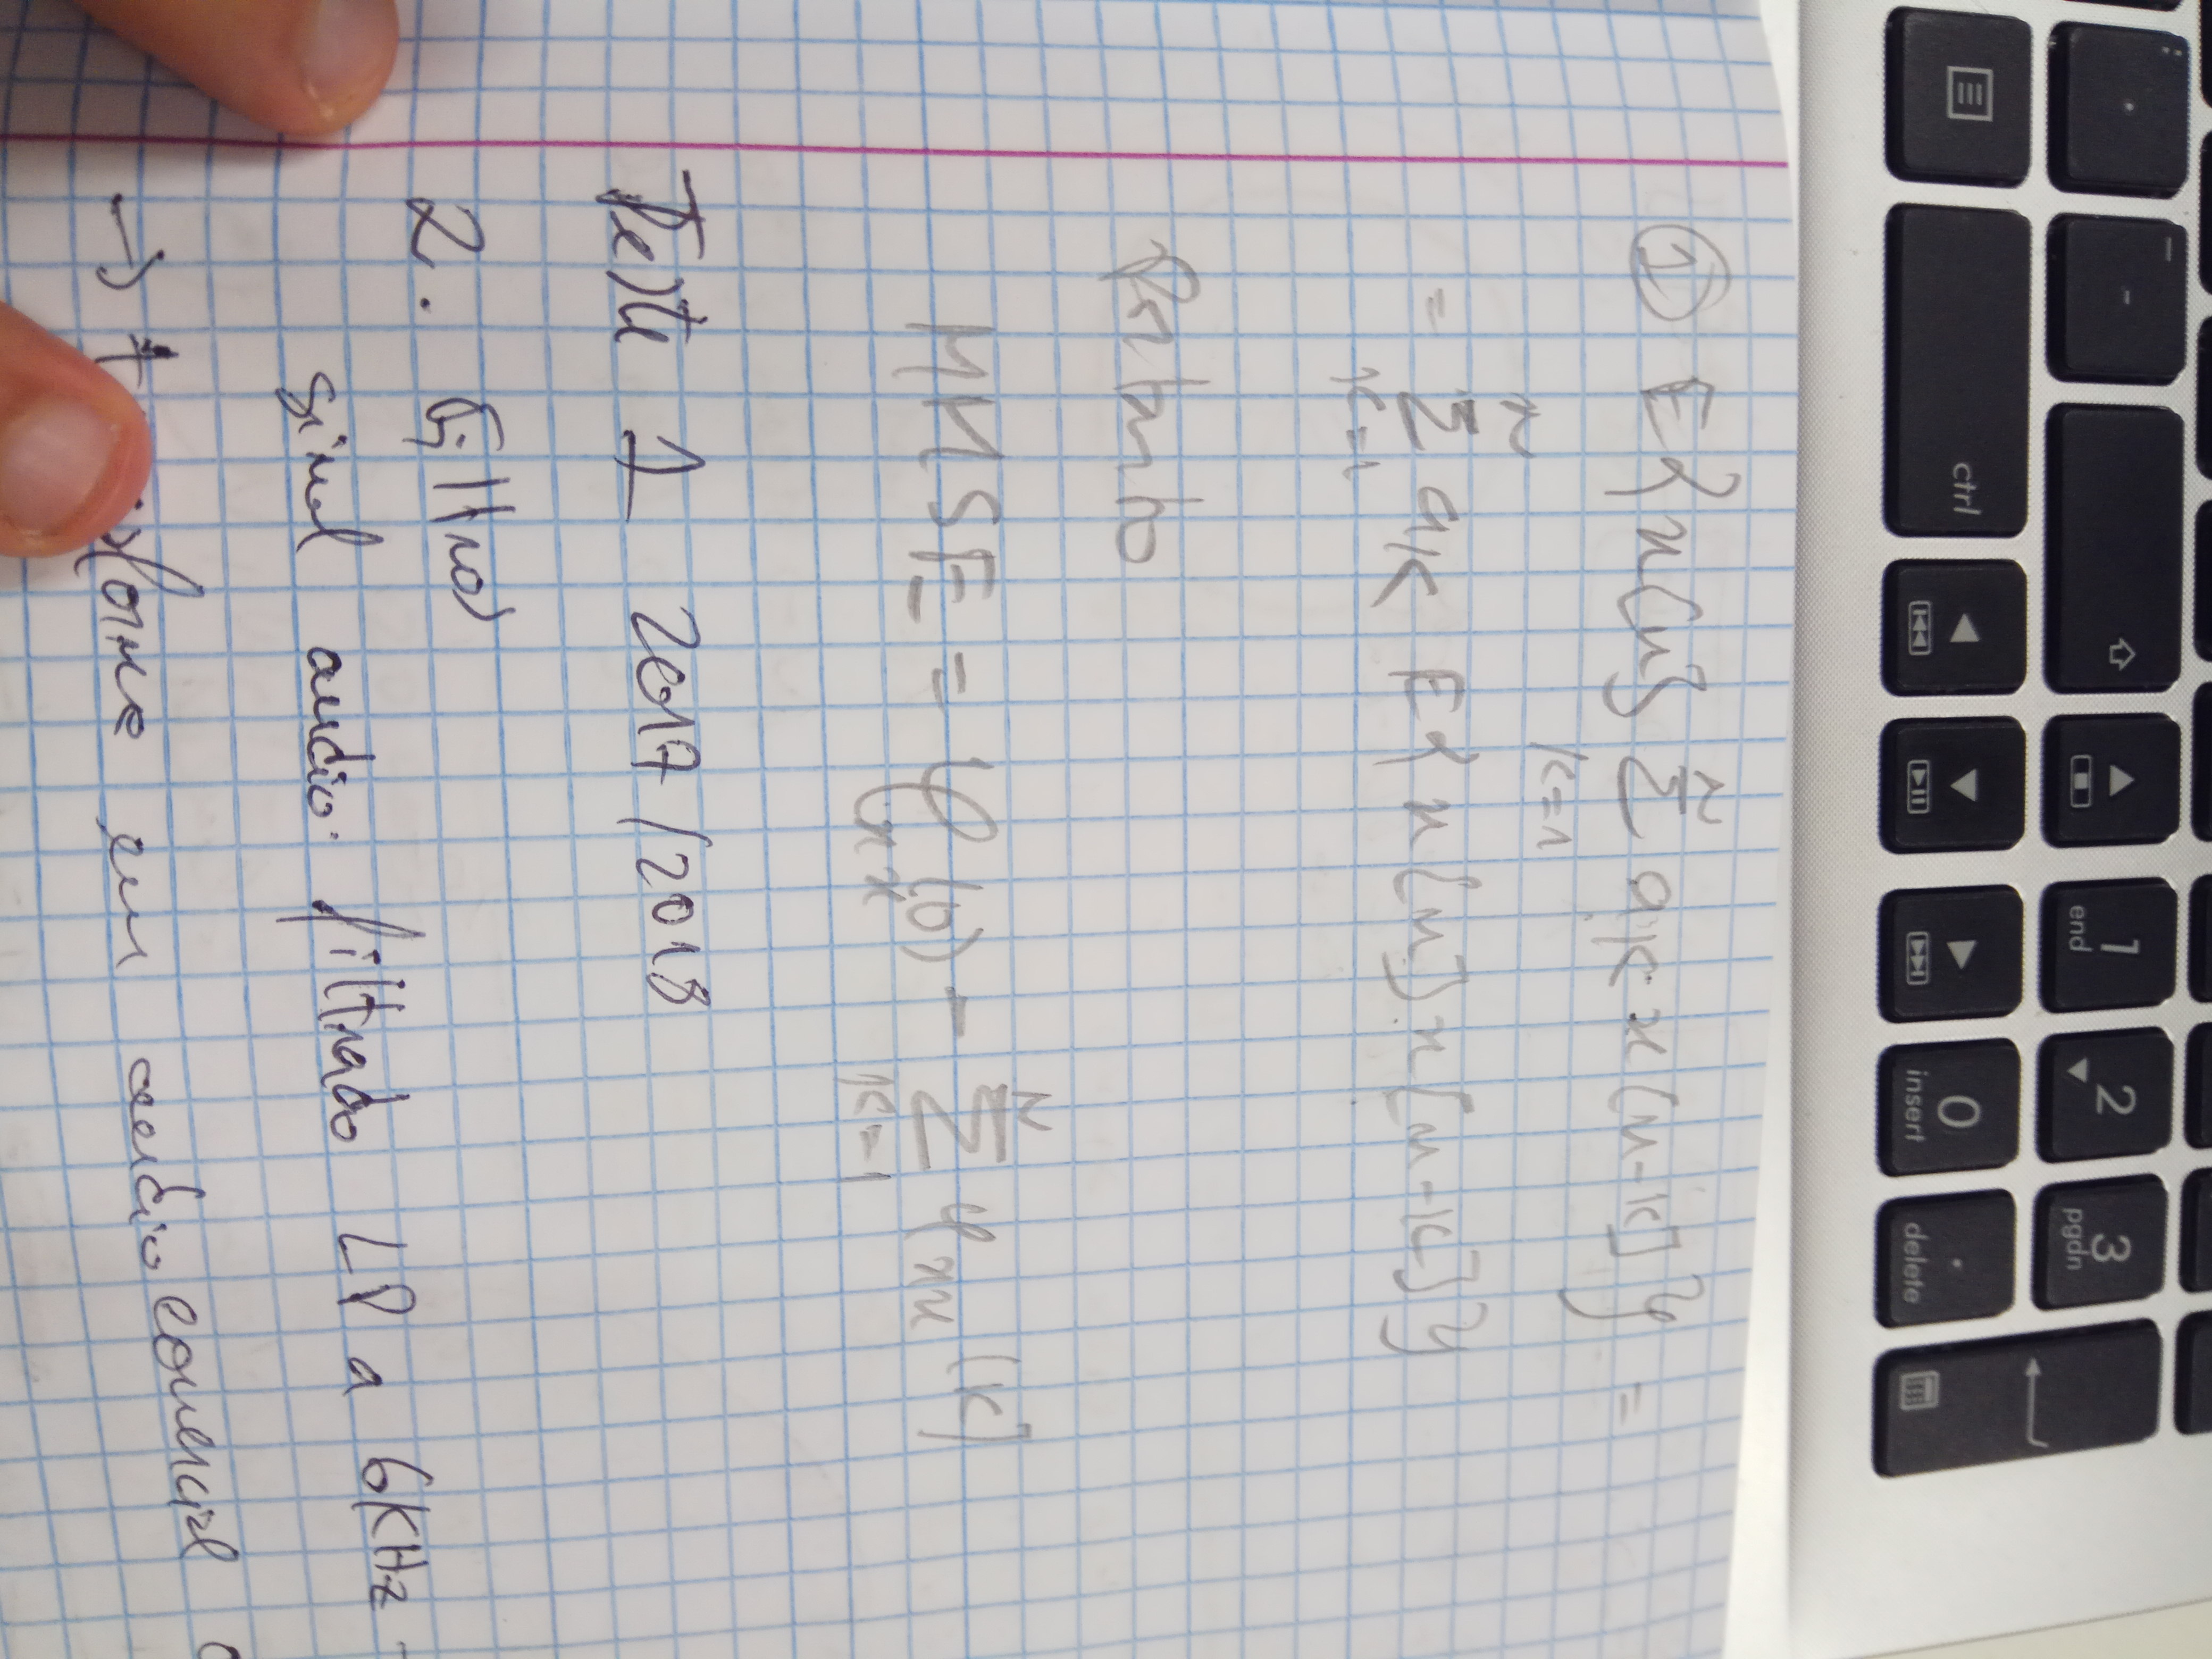 : . _ -
1 end 2 3 pgdn
ctrl 0 insert . delete
① E{x[n] Σ aₖ x[n-k]} =
k=1
N
= Σ aₖ E{x[n] x[n-k]}
k=1
Portanto
N
MMSE = φxx(0) - Σ φxx[k]
k=1
Teste 1 2017/2018
2. Filtros
sinal audio filtrado LP a 6KHz -
→ em audio comercial